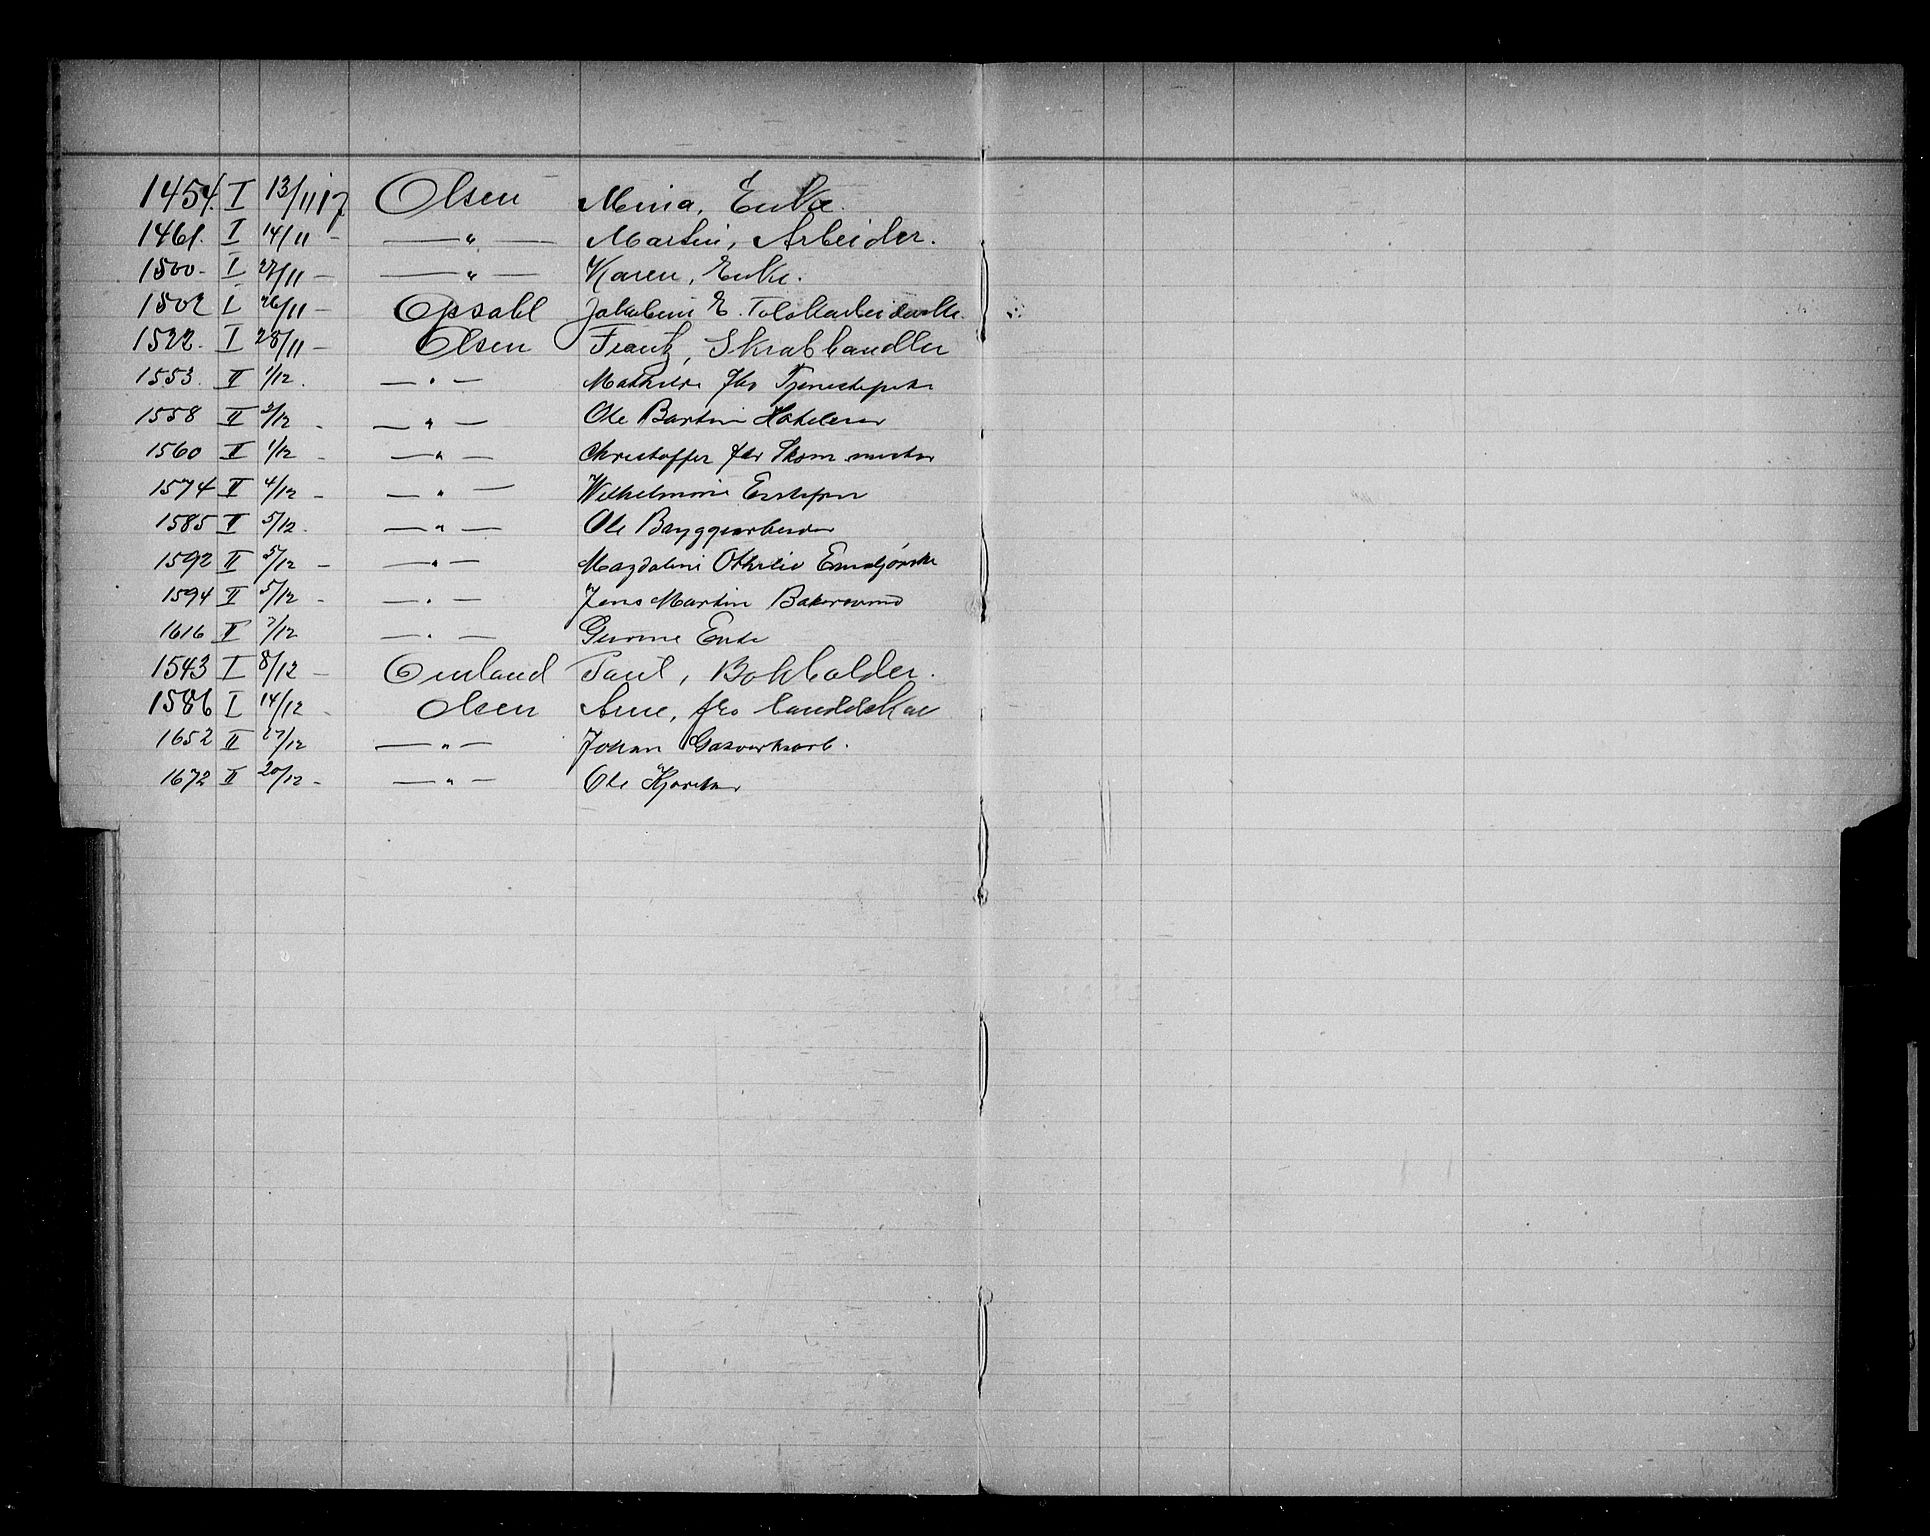 1454. I 13/11 17 Olsen Mina, Enke.
1461. I 14/11 - — " — Martin, Arbeider.
1500. I 27/11 - — " — Karen, Enke.
1502 I 26/11 - Opsahl Jakobine E.
1522. I 28/11 - Olsen Frantz, Skrabhandler
1553. II 1/12. — " — Mathilde fhv Tjenestepike
1558 II 3/12 - — " — Ole Bartin Hoteleier
1560 II 1/12 - — " — Christoffer fhv Skom mester
1574 II 4/12 - — " — Wilhelmine
1585 II 5/12. — " — Ole Bryggearbeider
1592 II 5/12 - — " — Magdaline Othilie
1594 II 5/12 - — " — Jens Martin Bakersvend
1616 II 7/12 — " — Gunine Enke
1543 I 8/12 - Omland Paul, Bokholder.
1586 I 14/12 - Olsen Arne, fhv
1652 II 17/12 — " — Johan Gasverksarb.
1672 II 20/12 - — " — Ole